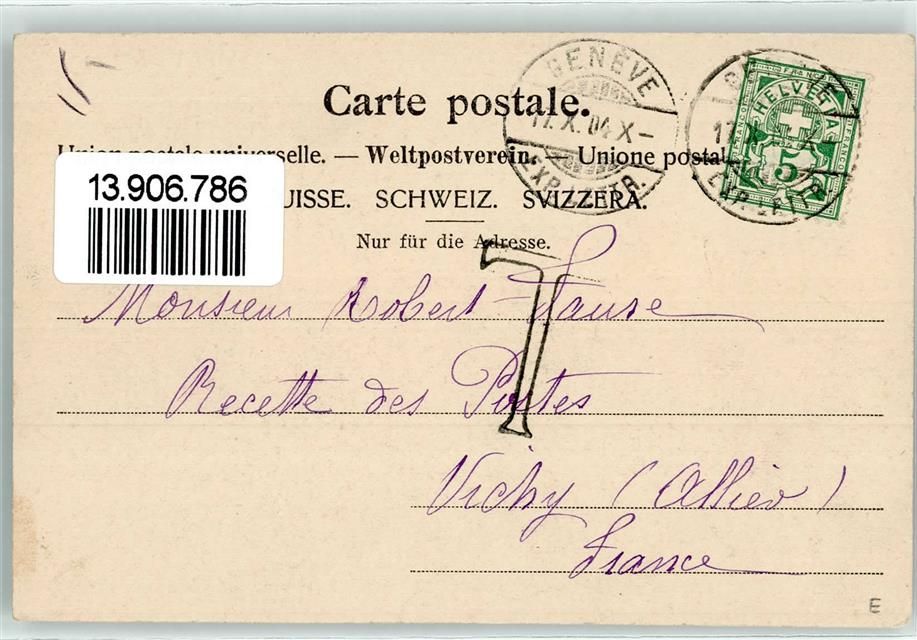 Carte postale.
Union postale universelle. — Weltpostverein. — Unione postal
UISSE. SCHWEIZ. SVIZZERA.
Nur für die Adresse.
13.906.786
GENÈVE
17.X.04 X–
EXP. LETTR.
17.X
EXP. LET
HELVETIA
FRANCO
5
T
Monsieur Robert
Recette des Postes
Vichy (Allier)
France
E